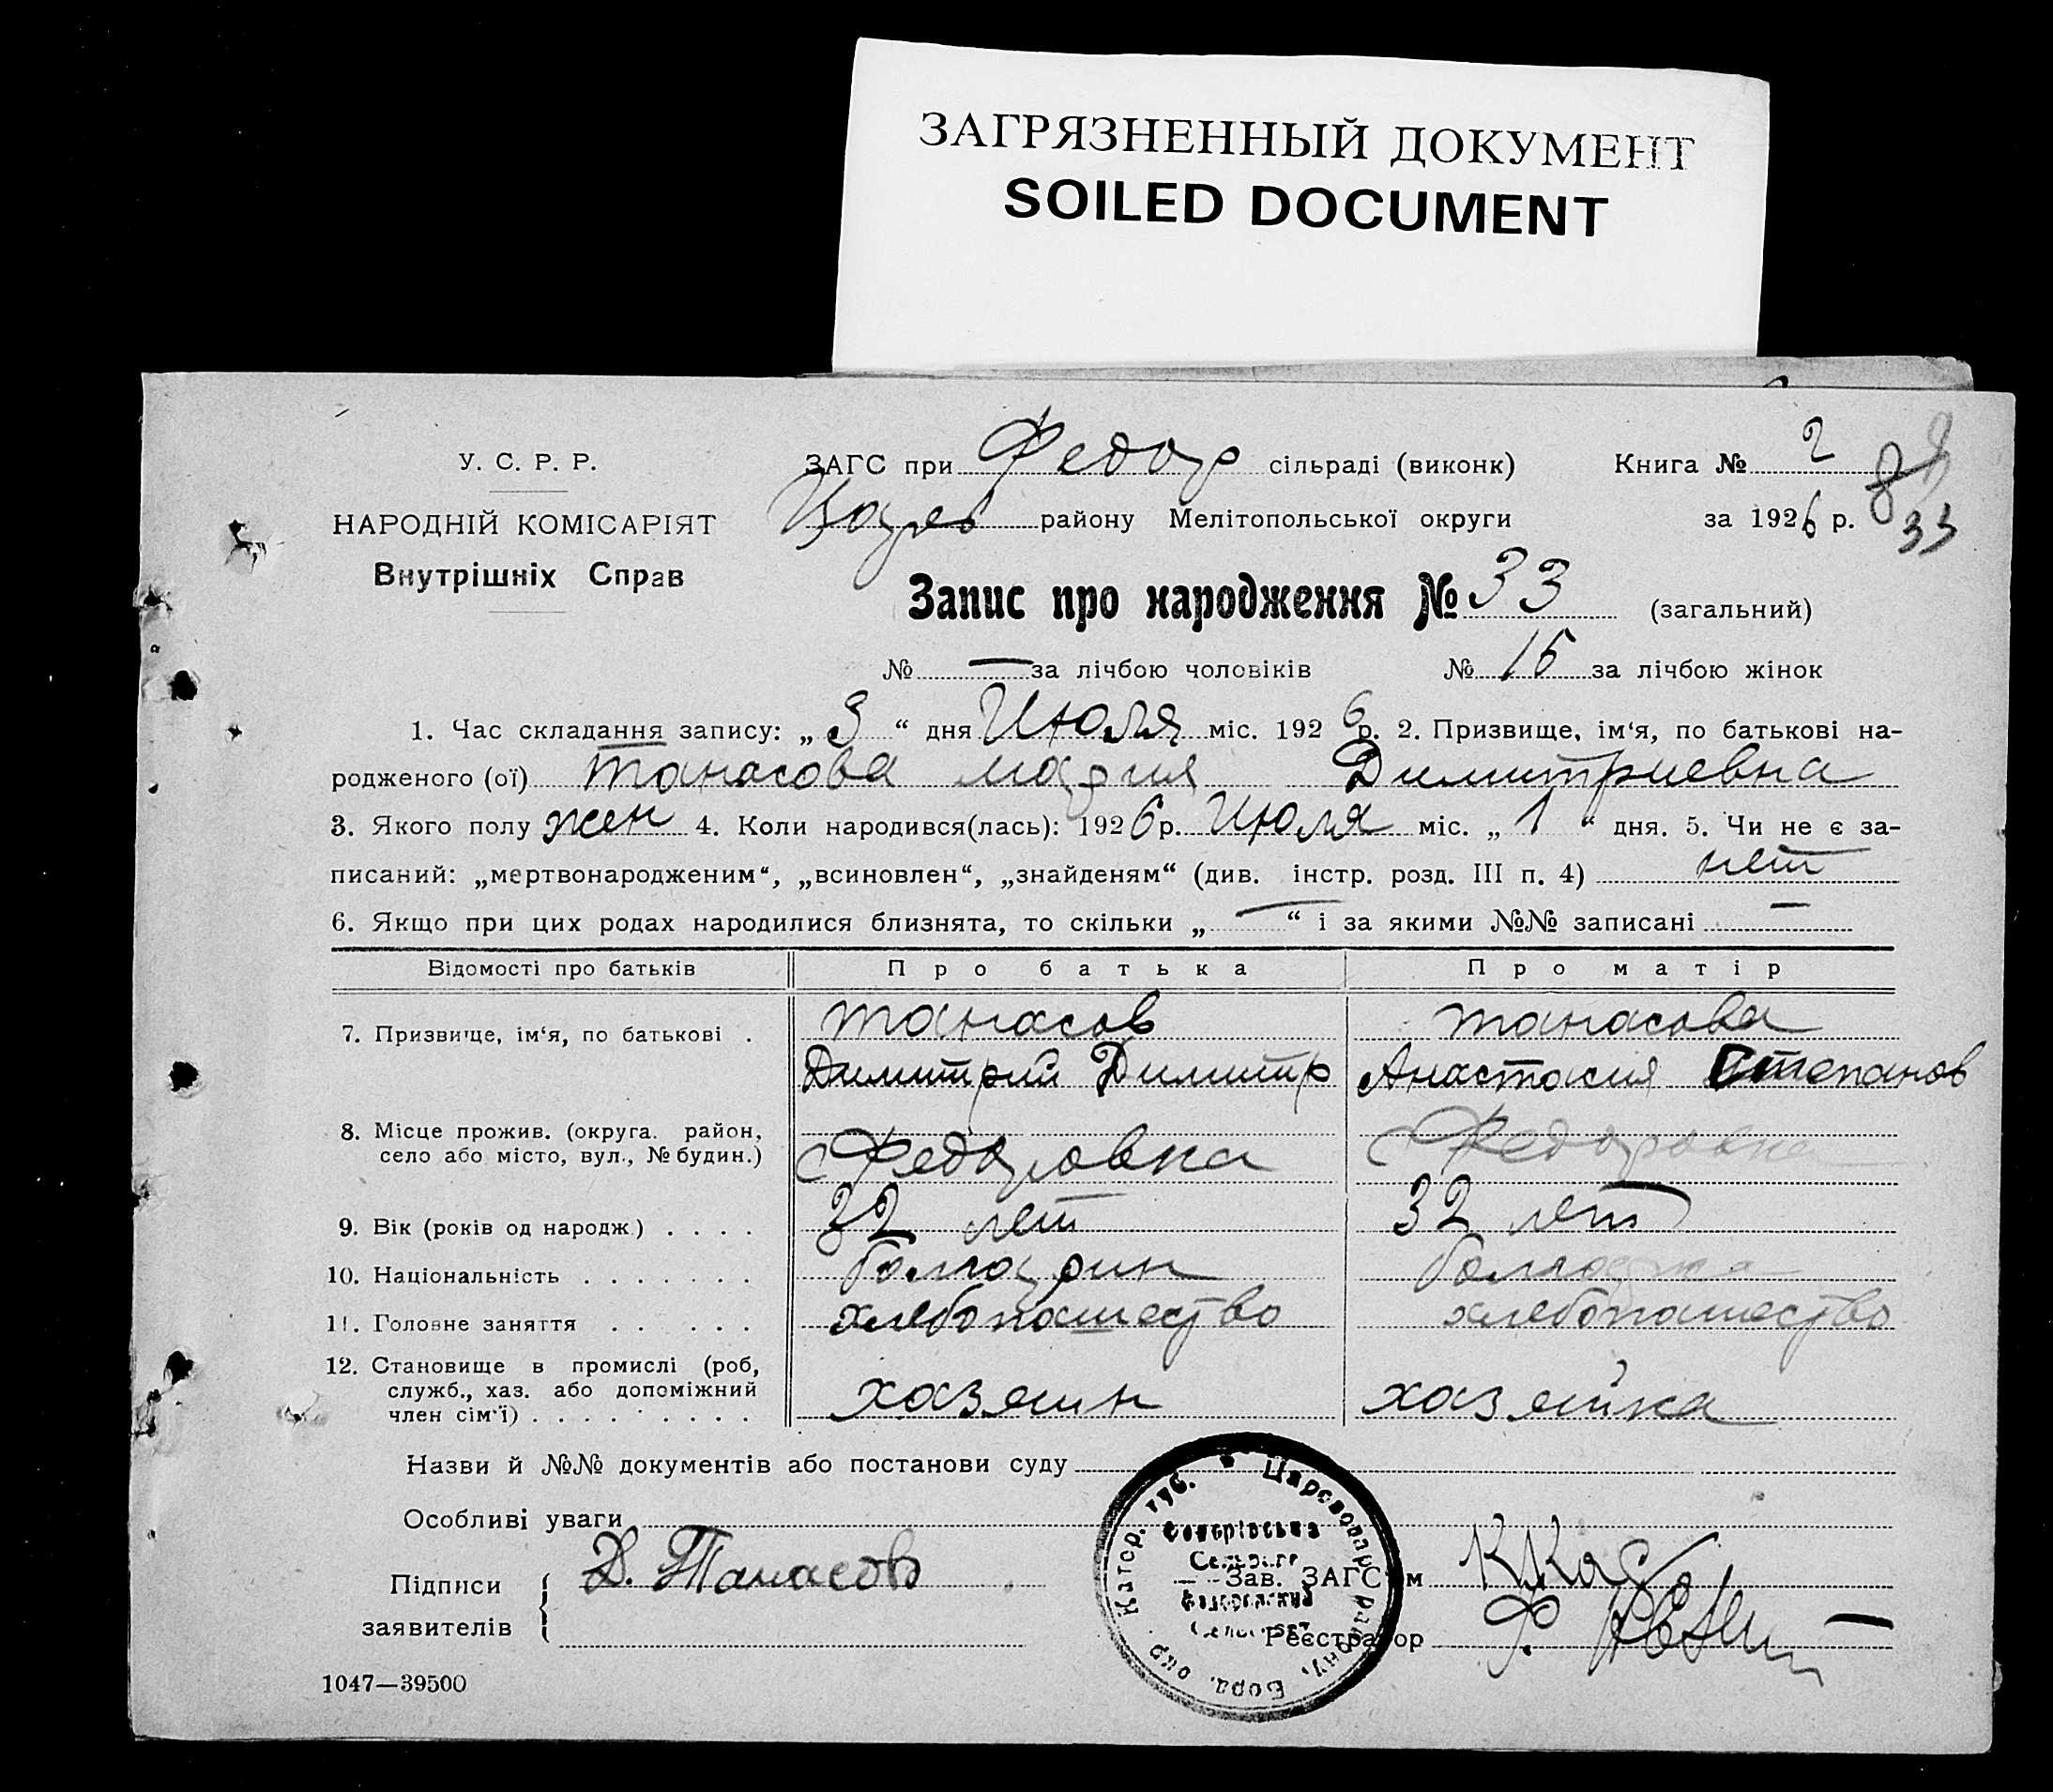 ЗАГРЯЗНЕННЫЙ ДОКУМЕНТ
SOILED DOCUMENT
У. С. Р. Р.
НАРОДНІЙ КОМІСАРІЯТ
Внутрішніх Справ
ЗАГС при Федор сільраді (виконк) Книга № 2
Царев району Мелітопольської округи за 1926 р. 33
Запис про народження № 33 (загальний)
№ — за лічбою чоловіків № 15 за лічбою жінок
1. Час складання запису: „ 3 “ дня Июля міс. 1926 р. 2. Призвище, ім‘я, по батькові на-
родженого (ої) Танасова Мария Димитриевна
3. Якого полу жен 4. Коли народився(лась): 1926 р. Июля міс. „ 1 “ дня. 5. Чи не є за-
писаний: „мертвонародженим“, „всиновлен“, „знайденям“ (див. інстр. розд. III п. 4) нет
6. Якщо при цих родах народилися близнята, то скільки „ — “ і за якими №№ записані —
Відомості про батьків Про батька Про матір
7. Призвище, ім‘я, по батькові . Танасов Танасова
Димитрий Димитр Анастасия Степанов
8. Місце прожив. (округа. район,
село або місто, вул., № будин.) с Федоровка с Федоровка
9. Вік (років од народж) . . . . 32 лет 32 лет
10. Національність . . . . . . . болгарин болгарка
11. Головне заняття . . . . . . хлебопашество хлебопашество
12. Становище в промислі (роб,
служб., хаз. або допоміжний
член сім‘ї) . . . . . . . . . хазяин хазяйка
Назви й №№ документів або постанови суду
Особливі уваги
Підписи Д. Танасов
заявителів
Зав. ЗАГС‘ом
Реєстратор
Катер. губ. Цареводар. району, Берд. окр.
1047—39500